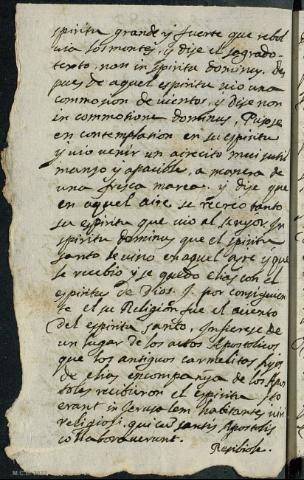 spiritu grande y fuerte que rebol
uia los montes, y dise el sagrado
texto, non in spiritu dominus, des
pues de aquel espiritu uio una
commosion de uientos, y dise non
in commotione dominus, Pusose
en contemplation en su espiritu
y uio uenir un airecito mui sutil
manso y apacible, a manera de
una fresca marea, y dise que
en aquel aire, se recreo tanto
su espiritu que uio al señor, In
spiritu dominus que el spiritu
santo le uino en aquel aire y que
se recebio y se quedo elias con el
espiritu de Dios. Y por consiguien
te el su Religion fue el aliento
del espiritu santo, Infierese de
un lugar de los actos Apostolicos
que los antiguos carmelitas hijos
de elias en compañya de los Apos
toles recibieron el espiritu sto
erant in Jerusalem habitantes uiri
religiosi, qui cum santis Apostolis
collaborauerunt.